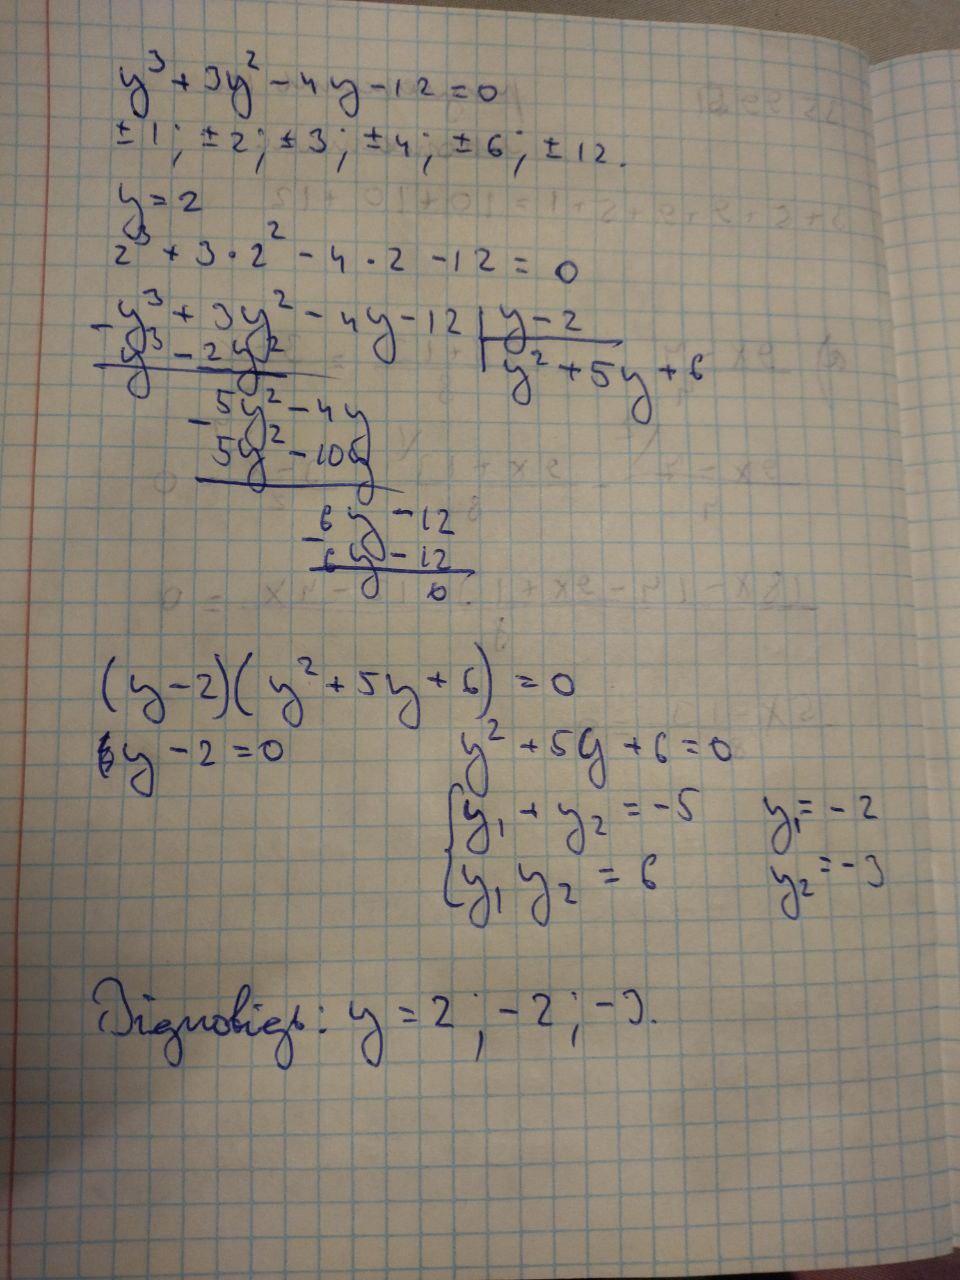 y³ + 3y² - 4y - 12 = 0
± 1; ± 2; ± 3; ± 4; ± 6; ± 12.
y = 2
2³ + 3 · 2² - 4 · 2 - 12 = 0
- y³ + 3y² - 4y - 12 | y - 2
y³ - 2y² y² + 5y + 6
- 5y² - 4y
5y² - 10y
- 6y - 12
6y - 12
0
(y - 2)(y² + 5y + 6) = 0
y - 2 = 0 y² + 5y + 6 = 0
{ y₁ + y₂ = -5 y₁ = -2
y₁ y₂ = 6 y₂ = -3
Відповідь: y = 2; -2; -3.